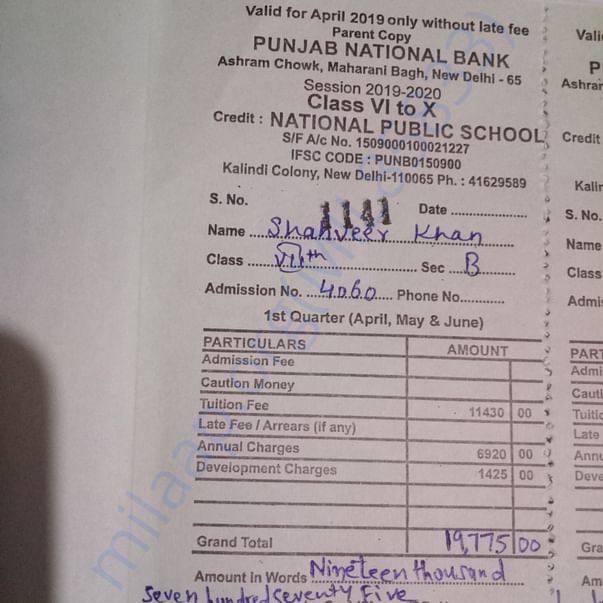 Valid for April 2019 only without late fee
Parent Copy
PUNJAB NATIONAL BANK
Ashram Chowk, Maharani Bagh, New Delhi - 65
Session 2019-2020
Class VI to X
Credit : NATIONAL PUBLIC SCHOOL
S/F A/c No. 1509000100021227
IFSC CODE : PUNB0150900
Kalindi Colony, New Delhi-110065 Ph. : 41629589
S. No. 1141 Date ..................
Name Shahveer Khan
Class VIIth Sec B
Admission No. 4060 Phone No...........
1st Quarter (April, May & June)
PARTICULARS AMOUNT
Admission Fee
Caution Money
Tuition Fee 11430 00
Late Fee / Arrears (if any)
Annual Charges 6920 00
Development Charges 1425 00
Grand Total 19,775 00
Amount in Words Nineteen thousand
Seven hundred seventy Five
Vali
P
Ashra
Credit
Kalin
S. No.
Name
Class
Admis
PART
Admi
Cauti
Tuitio
Late
Annu
Deve
Gra
Am
milaap